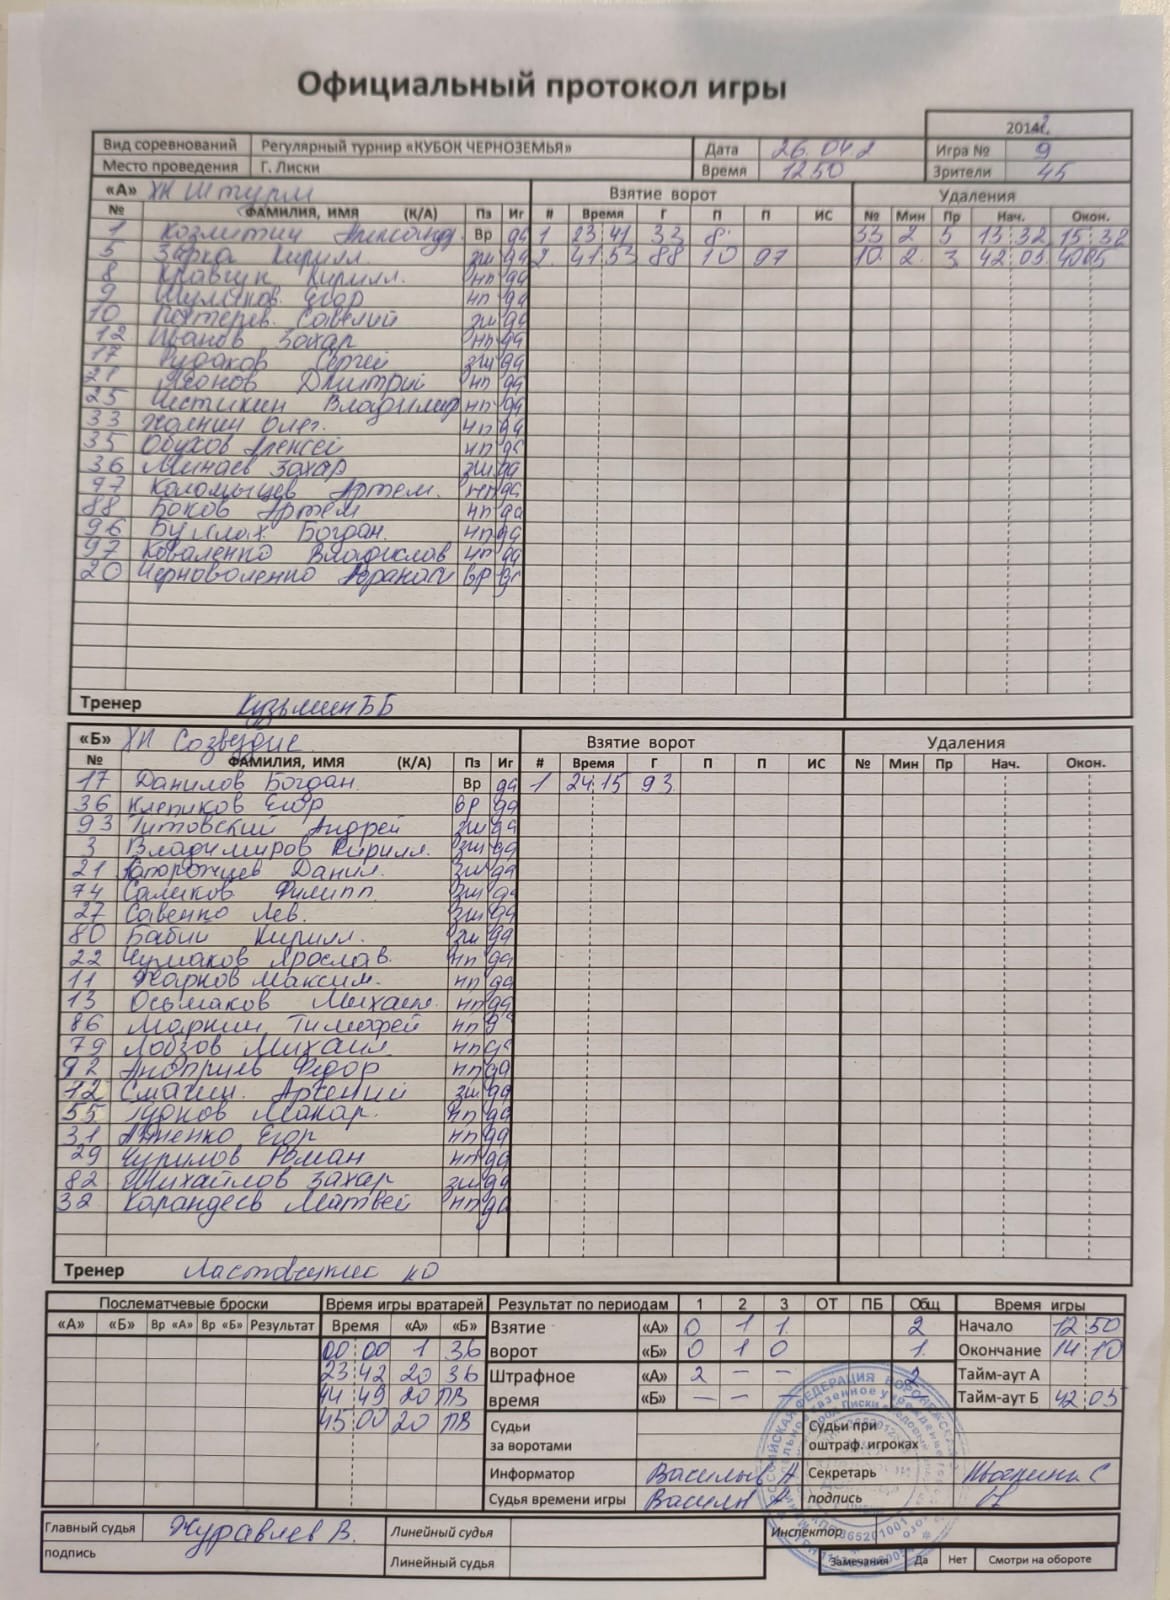 Официальный протокол игры
Вид соревнований Регулярный турнир «КУБОК ЧЕРНОЗЕМЬЯ» Дата 26.04.2
Место проведения Г. Лиски Время 12 50 Игра № 9
Зрители 45
«А» ХК Штурм Взятие ворот Удаления
№ ФАМИЛИЯ, ИМЯ (К/А) Пз Иг # Время Г П П ИС № Мин Пр Нач. Окон.
1 Александр Вр да 1 23 41 33 8 33 2 5 13 32 15 32
5 Зарка Кирилл. зщ да 2. 41 53 88 10 97 10. 2. 3 42 05
8 Кравчук Кирилл. нп да
9 Егор нп да
10 Савелий зщ да
12 Иванов Захар нп да
17 Рудаков Сергей зщ да
21 Леонов Дмитрий нп да
25 Владимир нп да
33 Олег. нп да
35 Обухов Алексей нп да
36 Минаев Захар зщ да
97 Коломыцев Артем. нп да
88 Боков Артем нп да
96 Богдан. нп да
97 Коваленко Владислав нп да
20 Черноволенко вр да
Тренер Кузьмин
«Б» ХК Созвездие Взятие ворот Удаления
№ ФАМИЛИЯ, ИМЯ (К/А) Пз Иг # Время Г П П ИС № Мин Пр Нач. Окон.
17 Данилов Богдан Вр да 1 24 15 93
36 Клепиков Егор вр да
93 Титовский Андрей зщ да
3 Владимиров Кирилл. зщ да
21 Данил. зщ да
74 Саликов Филипп зщ да
27 Савенко Лев. зщ да
80 Бабий Кирилл. зщ да
22 Чумаков Ярослав. нп да
11 Жарков Максим. нп да
13 Осьмаков Михаил. нп да
86 Тимофей нп
79 Лобзов Михаил нп да
92 Федор нп да
12 Арсений зщ да
55 Гудков Макар. нп да
31 Егор нп да
29 Чурилов Роман нп да
82 Михайлов Захар зщ да
32 Карандеев Матвей нп да
Тренер
Послематчевые броски Время игры вратарей Результат по периодам 1 2 3 ОТ ПБ Общ Время игры
«А» «Б» Вр «А» Вр «Б» Результат Время «А» «Б» Взятие «А» 0 1 1 2 Начало 12 50
00 00 1 36 ворот «Б» 0 1 0 1 Окончание 14 10
23 42 20 36 Штрафное «А» 2 — — 2 Тайм-аут А
44 49 20 ПВ время «Б» — — — Тайм-аут Б 42 05
45 00 20 ПВ Судьи за воротами Судьи при оштраф. игроках
Информатор Секретарь
Судья времени игры подпись
Главный судья Журавлев В. Линейный судья Инспектор
подпись Линейный судья Замечания Да Нет Смотри на обороте